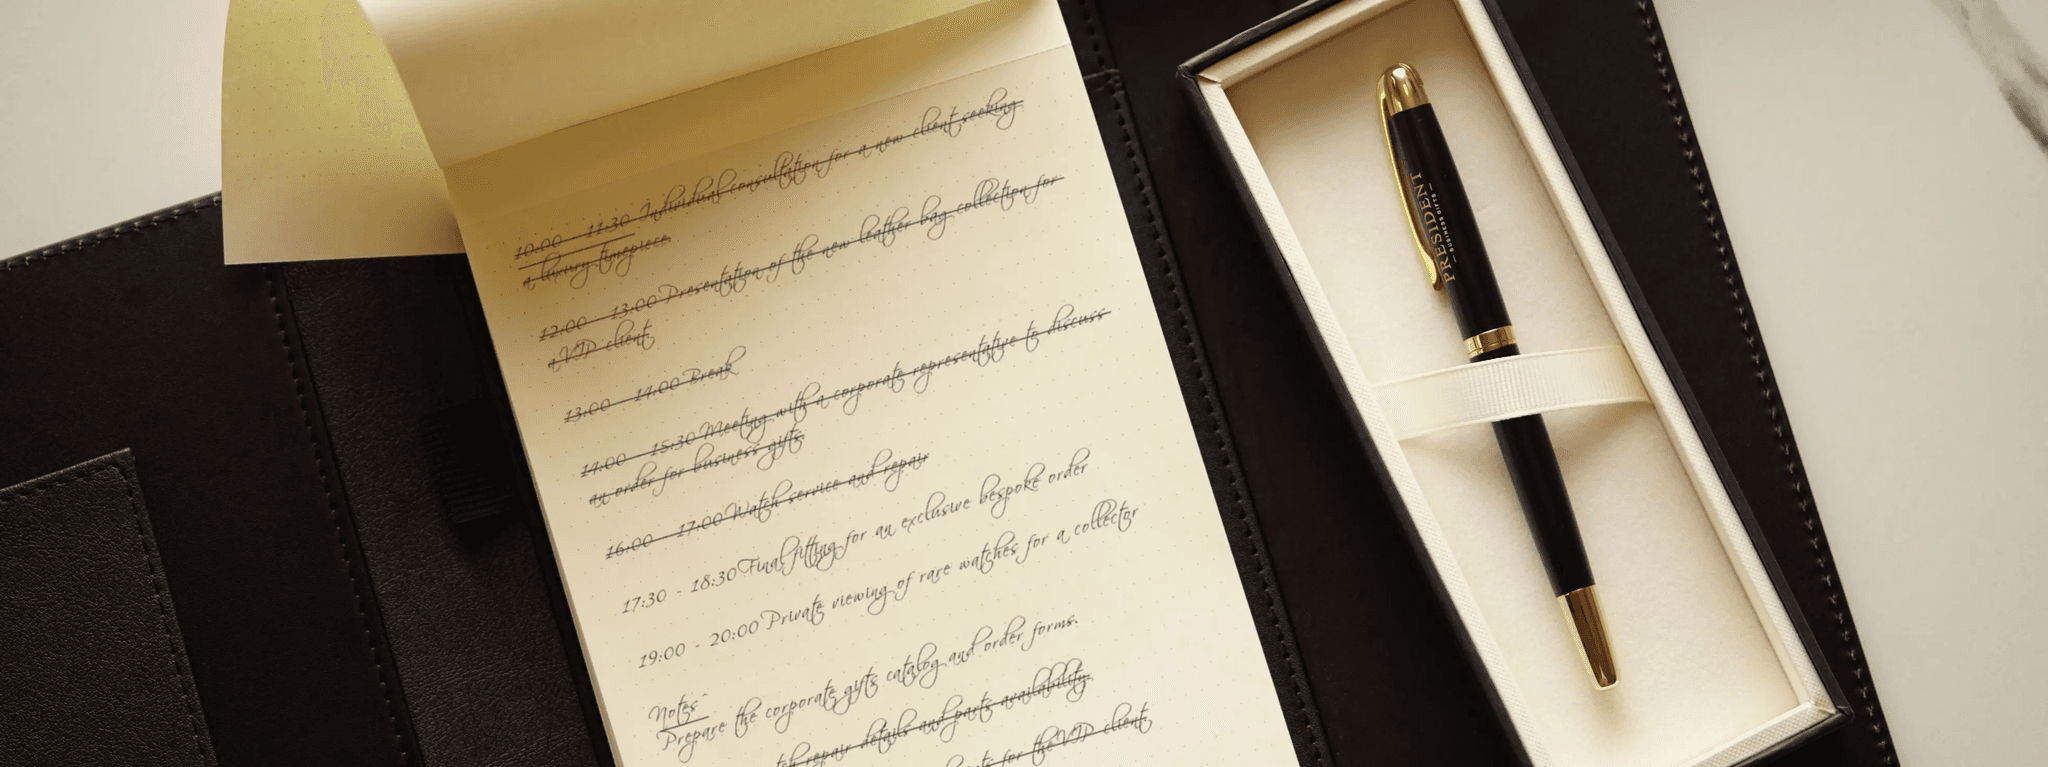 10:00 - 11:30 Individual consultation for a new client seeking
a luxury timepiece.
12:00 - 13:00 Presentation of the new leather bag collection for
a VIP client
13:00 - 14:00 Break
14:00 - 15:30 Meeting with a corporate representative to discuss
an order for business gifts
16:00 - 17:00 Watch service and repair
17:30 - 18:30 Final fitting for an exclusive bespoke order
19:00 - 20:00 Private viewing of rare watches for a collector
Notes
Prepare the corporate gifts catalog and order forms.
repair details and parts availability.
for the VIP client.
PRESIDENT
BUSINESS GIFTS